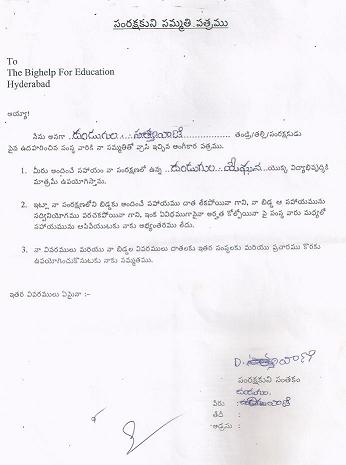 సంరక్షకుని సమ్మతి పత్రము
To
The Bighelp For Education
Hyderabad
అయ్యా!
నేను అనగా దుండుగుల సత్యవాణి తండ్రి/తల్లి/సంరక్షకుడు
పైన ఉదహరించిన సంస్థ వారికి నా సమ్మతితో వ్రాసి ఇచ్చిన అంగీకార పత్రము.
1. మీరు అందించే సహాయం నా సంరక్షణలో ఉన్న దుండుగుల యొక్క విద్యాభివృద్ధికి
మాత్రమే ఉపయోగిస్తాను.
2. ఇట్లా నా సంరక్షణలోని బిడ్డకు అందించే సహాయము దాత లేకపోయినా గాని, నా బిడ్డ ఆ సహాయమును
సద్వినియోగము పరచకపోయినా గాని, ఇంకే విధముగానైనా అర్హత కోల్పోయినా పై సంస్థ వారు మధ్యలో
సహాయమును ఆపివేయుటకు నాకు అభ్యంతరము లేదు.
3. నా వివరములు మరియు నా బిడ్డల వివరములు దాతలకు ఇతర సంస్థలకు మరియు ప్రచారము కొరకు
ఉపయోగించుకొనుటకు నాకు సమ్మతము.
ఇతర వివరములు ఏమైనా :-
D.
సంరక్షకుని సంతకం
పేరు :
తేదీ :
అడ్రసు :